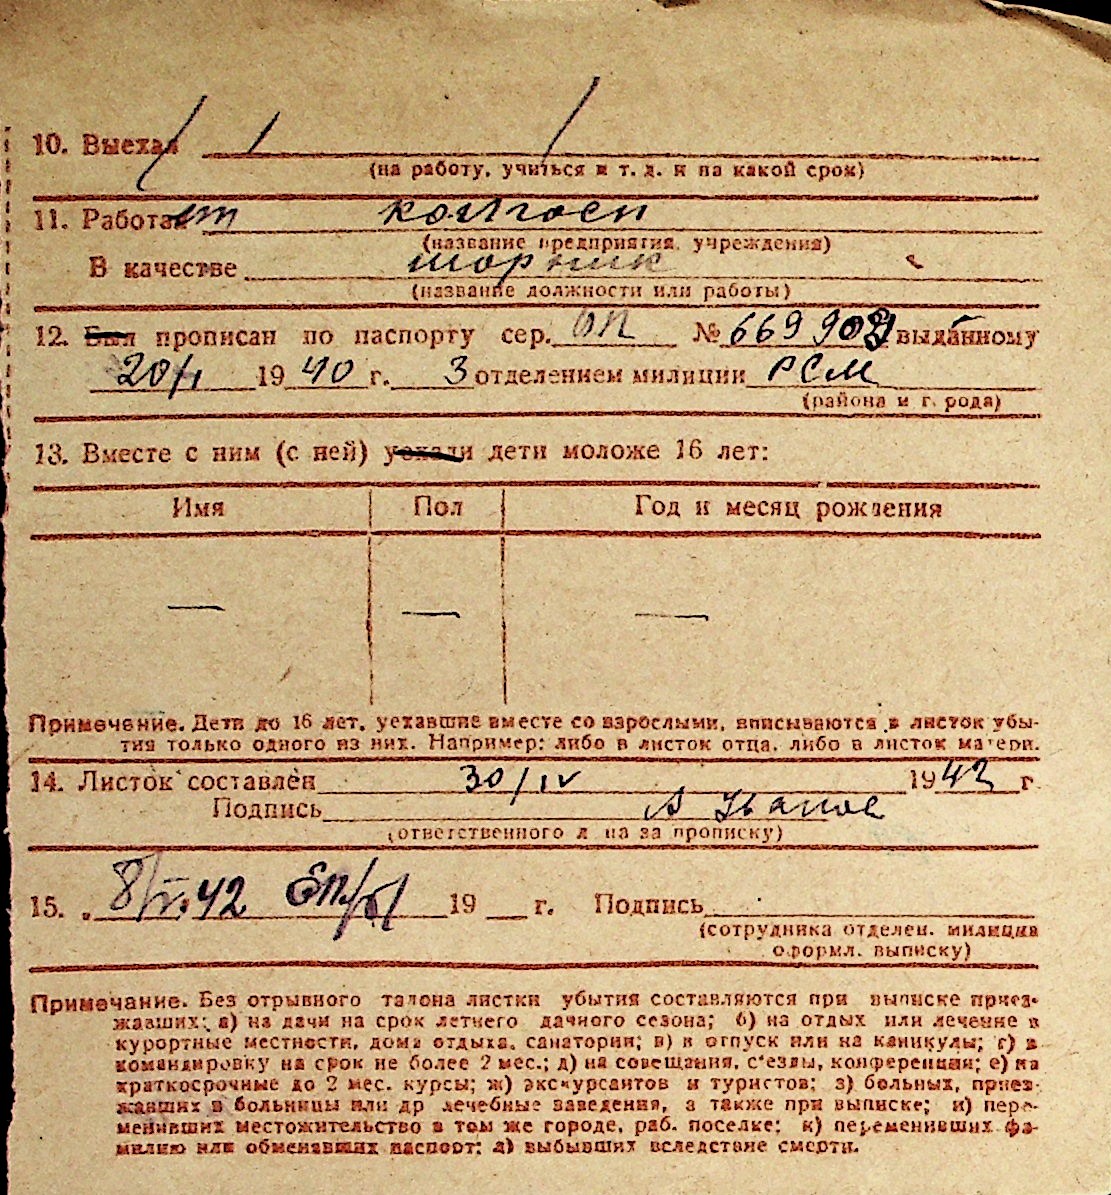 10. Выехал
(на работу, учиться и т. д. и на какой срок)
11. Работает колхоз
(название предприятия, учреждения)
В качестве шорник
(название должности или работы)
12. Был прописан по паспорту сер. ОП № выданному
20/I 1940 г. 3 отделением милиции РСМ
(района и г. рода)
13. Вместе с ним (с ней) уехали дети моложе 16 лет:
Имя Пол Год и месяц рождения
— — —
Примечание. Дети до 16 лет, уехавшие вместе со взрослыми, вписываются в листок убы-
тия только одного из них. Например: либо в листок отца, либо в листок матери.
14. Листок составлен 30/IV 1942 г.
Подпись
(ответственного лица за прописку)
15. 8/VI.42 19 г. Подпись
(сотрудника отделен. милиции
оформл. выписку)
Примечание. Без отрывного талона листки убытия составляются при выписке приез-
жавших: а) на дачи на срок летнего дачного сезона; б) на отдых или лечение в
курортные местности, дома отдыха, санатории; в) в отпуск или на каникулы; г) в
командировку на срок не более 2 мес.; д) на совещания, с'езды, конференции; е) на
краткосрочные до 2 мес. курсы; ж) экскурсантов и туристов; з) больных, приез-
жавших в больницы или др лечебные заведения, а также при выписке; и) пере-
менивших местожительство в том же городе, раб. поселке; к) переменивших фа-
милию или обменявших паспорт; л) выбывших вследствие смерти.